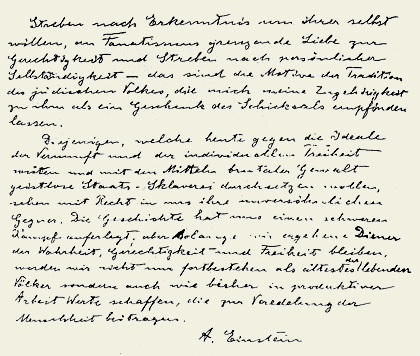 Streben nach Erkenntnis um ihrer selbst
willen, an Fanatismus grenzende Liebe zur
Gerechtigkeit und Streben nach persönlicher
Selbständigkeit – das sind die Motive der Tradition
des jüdischen Volkes, die mich meine Zugehörigkeit
zu ihm als ein Geschenk des Schicksals empfinden
lassen.
Diejenigen, welche heute gegen die Ideale
der Vernunft und der individuellen Freiheit
wüten und mit den Mitteln brutaler Gewalt
geistlose Staats-Sklaverei durchsetzen wollen,
sehen mit Recht in uns ihre unversöhnlichen
Gegner. Die Geschichte hat uns einen schweren
Kampf auferlegt; aber solange wir ergebene Diener
der Wahrheit, Gerechtigkeit und Freiheit bleiben,
werden wir nicht nur fortbestehen als ältestes der lebenden
Völker sondern auch wie bisher in produktiver
Arbeit Werte schaffen, die zur Veredelung der
Menschheit beitragen.
A. Einstein